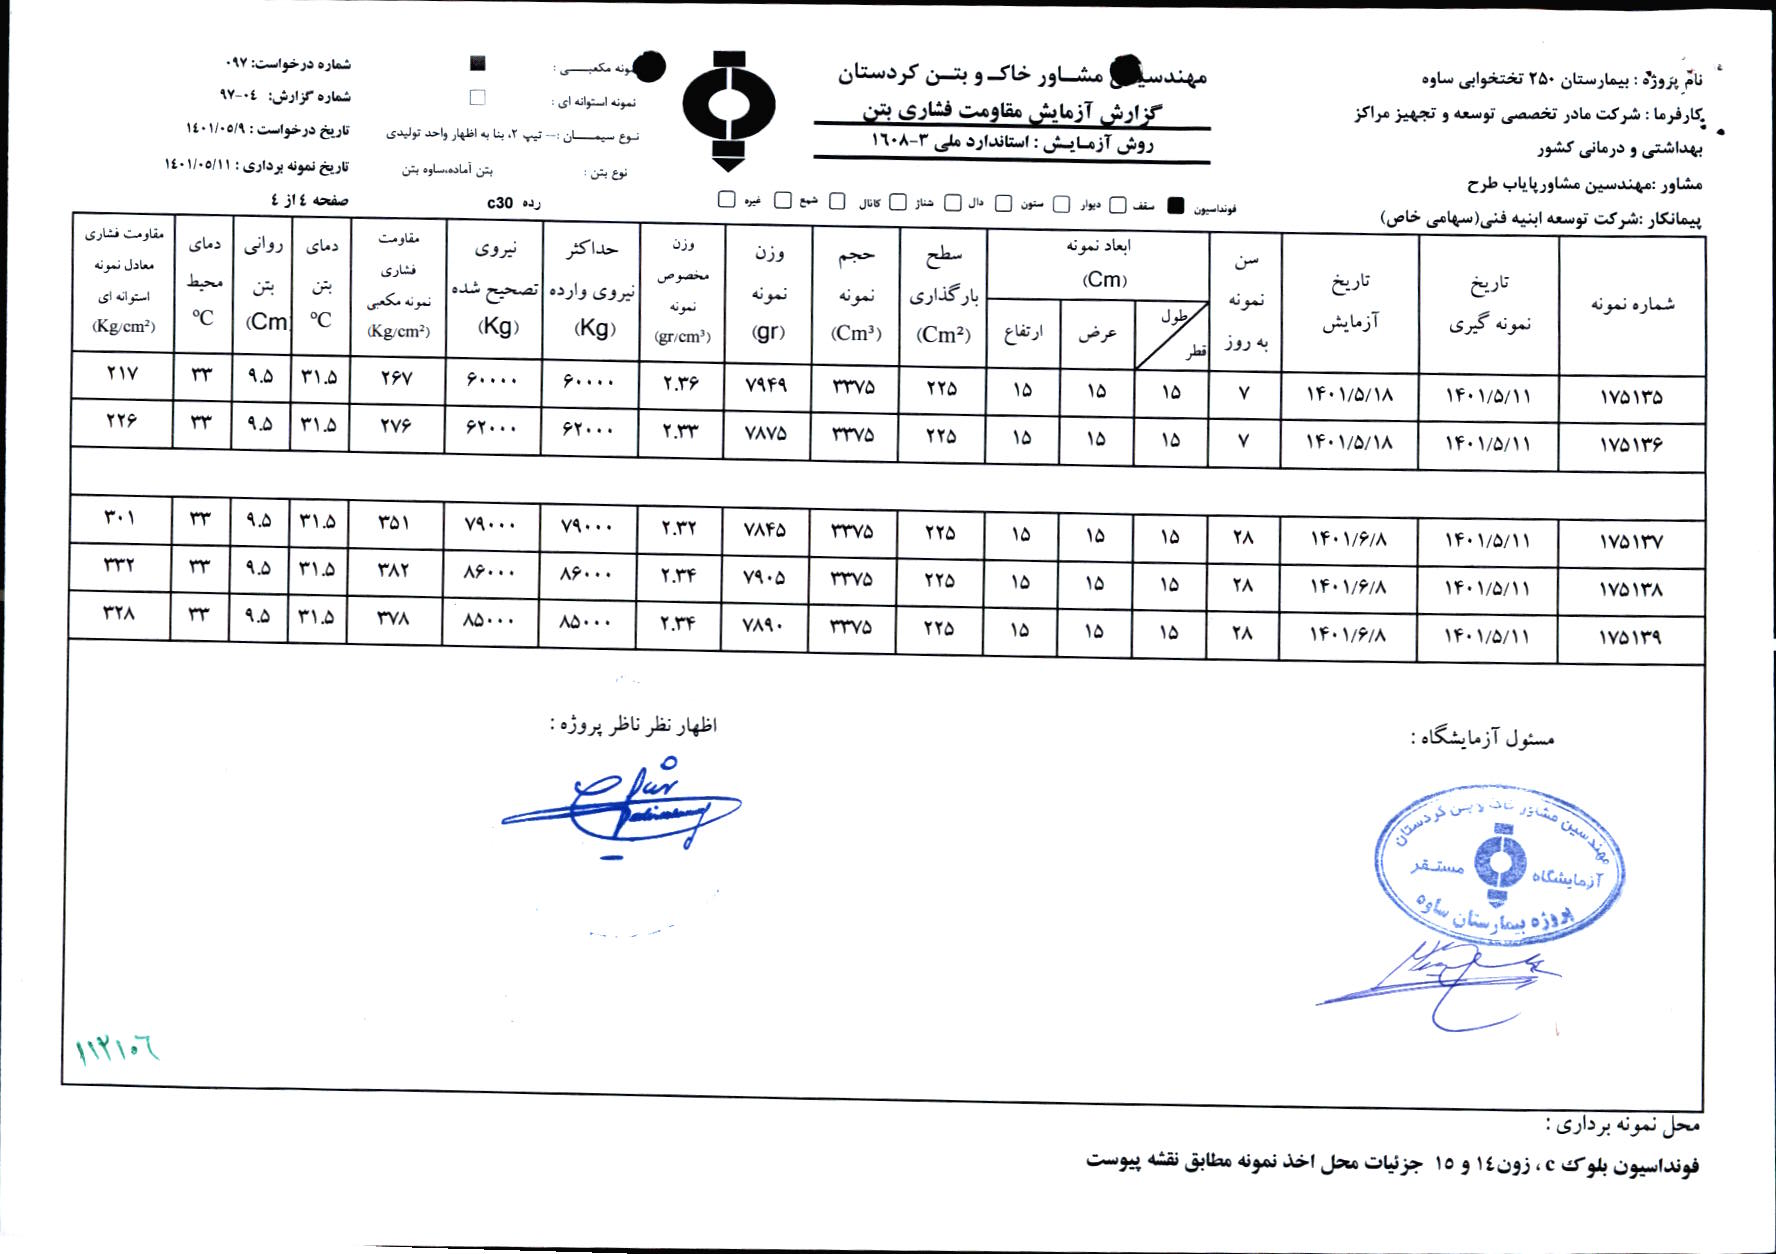 نام پروژه : بیمارستان ۲۵۰ تختخوابی ساوه
کارفرما : شرکت مادر تخصصی توسعه و تجهیز مراکز
بهداشتی و درمانی کشور
مشاور :مهندسین مشاورپایاب طرح
پیمانکار :شرکت توسعه ابنیه فنی(سهامی خاص)
مهندسین مشاور خاک و بتن کردستان
گزارش آزمایش مقاومت فشاری بتن
روش آزمایش : استاندارد ملی ۳-۱۶۰۸
نمونه مکعبی : ■
نمونه استوانه ای : □
نوع سیمان :-- تیپ ۲، بنا به اظهار واحد تولیدی
نوع بتن : بتن آماده،ساوه بتن
شماره درخواست: ۰۹۷
شماره گزارش: ۰۴-۹۷
تاریخ درخواست : ۱۴۰۱/۰۵/۹
تاریخ نمونه برداری : ۱۴۰۱/۰۵/۱۱
فونداسیون ■ سقف □ دیوار □ ستون □ دال □ شناژ □ کانال □ شمع □ غیره □
رده c30
صفحه ٤ از ٤
شماره نمونه | تاریخ نمونه گیری | تاریخ آزمایش | سن نمونه به روز | ابعاد نمونه (Cm) | سطح بارگذاری (Cm²) | حجم نمونه (Cm³) | وزن نمونه (gr) | وزن مخصوص نمونه (gr/cm³) | حداکثر نیروی وارده (Kg) | نیروی تصحیح شده (Kg) | مقاومت فشاری نمونه مکعبی (Kg/cm²) | دمای بتن °C | روانی بتن (Cm | دمای محیط °C | مقاومت فشاری معادل نمونه استوانه ای (Kg/cm²)
طول قطر | عرض | ارتفاع
۱۷۵۱۳۵ | ۱۴۰۱/۵/۱۱ | ۱۴۰۱/۵/۱۸ | ۷ | ۱۵ | ۱۵ | ۱۵ | ۲۲۵ | ۳۳۷۵ | ۷۹۴۹ | ۲.۳۶ | ۶۰۰۰۰ | ۶۰۰۰۰ | ۲۶۷ | ۳۱.۵ | ۹.۵ | ۳۳ | ۲۱۷
۱۷۵۱۳۶ | ۱۴۰۱/۵/۱۱ | ۱۴۰۱/۵/۱۸ | ۷ | ۱۵ | ۱۵ | ۱۵ | ۲۲۵ | ۳۳۷۵ | ۷۸۷۵ | ۲.۳۳ | ۶۲۰۰۰ | ۶۲۰۰۰ | ۲۷۶ | ۳۱.۵ | ۹.۵ | ۳۳ | ۲۲۶
۱۷۵۱۳۷ | ۱۴۰۱/۵/۱۱ | ۱۴۰۱/۶/۸ | ۲۸ | ۱۵ | ۱۵ | ۱۵ | ۲۲۵ | ۳۳۷۵ | ۷۸۴۵ | ۲.۳۲ | ۷۹۰۰۰ | ۷۹۰۰۰ | ۳۵۱ | ۳۱.۵ | ۹.۵ | ۳۳ | ۳۰۱
۱۷۵۱۳۸ | ۱۴۰۱/۵/۱۱ | ۱۴۰۱/۶/۸ | ۲۸ | ۱۵ | ۱۵ | ۱۵ | ۲۲۵ | ۳۳۷۵ | ۷۹۰۵ | ۲.۳۴ | ۸۶۰۰۰ | ۸۶۰۰۰ | ۳۸۲ | ۳۱.۵ | ۹.۵ | ۳۳ | ۳۳۲
۱۷۵۱۳۹ | ۱۴۰۱/۵/۱۱ | ۱۴۰۱/۶/۸ | ۲۸ | ۱۵ | ۱۵ | ۱۵ | ۲۲۵ | ۳۳۷۵ | ۷۸۹۰ | ۲.۳۴ | ۸۵۰۰۰ | ۸۵۰۰۰ | ۳۷۸ | ۳۱.۵ | ۹.۵ | ۳۳ | ۳۲۸
مسئول آزمایشگاه :
اظهار نظر ناظر پروژه :
مهندسین مشاور خاک و بتن کردستان
آزمایشگاه مستقر
پروژه بیمارستان ساوه
۱۱۲۱۰۶
محل نمونه برداری :
فونداسیون بلوک c ، زون۱٤ و ۱۵ جزئیات محل اخذ نمونه مطابق نقشه پیوست